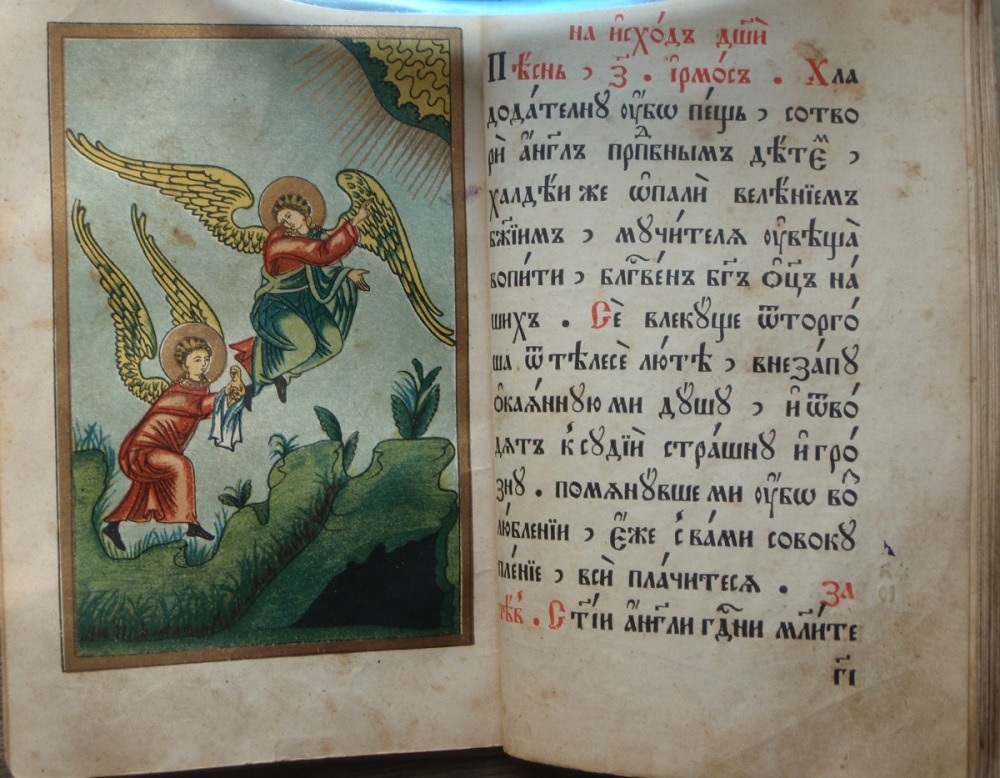 на и҆схо́дъ дш҃ѝ
Пѣ́снь , з҃ . і҆рмо́съ . Хла
дода́телнꙋ ᲂу҆́бѡ пе́щь , сотво
рѝ а҆́нг҃лъ прⷣпбнымъ дѣ́теⷨ ,
халдѣ́и же ѡ҆палѝ велѣ́нїемъ
бж҃їимъ , мꙋчи́телѧ ᲂу҆вѣща̀
вопи́ти , блгⷭ҇ве́нъ бг҃ъ ѻ҆ц҃ъ на́
шихъ . Сѐ влекꙋ́ще ѿторго́
ша ѿ тѣлесѐ лю́тѣ , внеза́пꙋ
ѻ҆каѧ́ннꙋю ми дꙋ́шꙋ , и҆ ѿво́
дѧтъ к̾ сꙋдїѝ стра́шнꙋ и҆ гро́
знꙋ . помѧнꙋ́вше ми ᲂу҆́бѡ во̂
лю́бленїи , є҆́же с̾ ва́ми совокꙋ
пле́нїе , всѝ пла́читесѧ . За
пѣ́в . С ті҃и а҆́нг҃ли гдⷭ҇ни мл҃и́те
г҃і